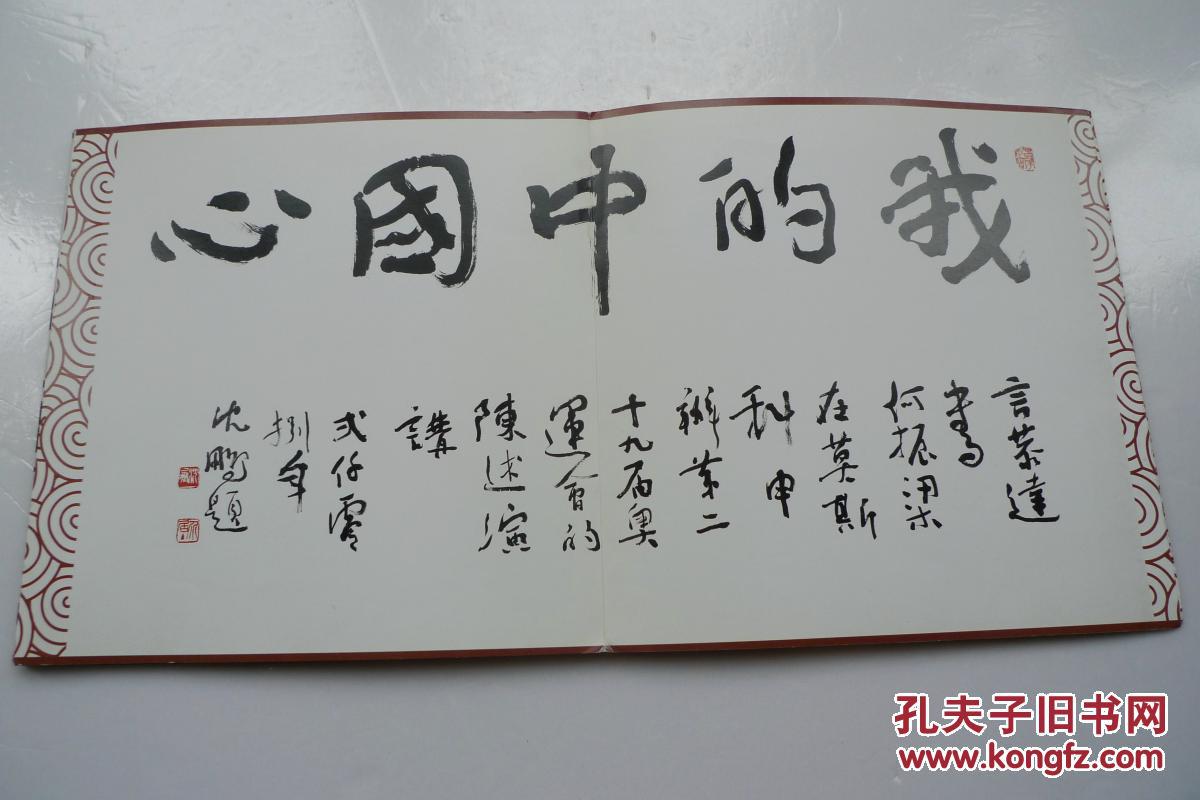 我的中國心
言恭達
書
何振梁
在莫斯
科申
辦第二
十九届奥
運會的
陳述演
講
弍仟零
捌年
沈鵬題
孔夫子旧书网
www.kongfz.com